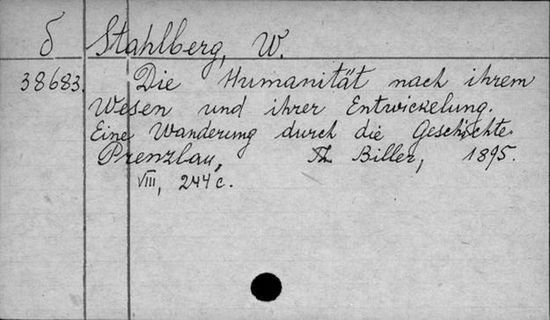 б Stahlberg, W.
38683. Die Humanität nach ihrem
Wesen und ihrer Entwickelung.
Eine Wanderung durch die Geschichte.
Prenzlau, Th. Biller, 1895.
VIII, 244 c.